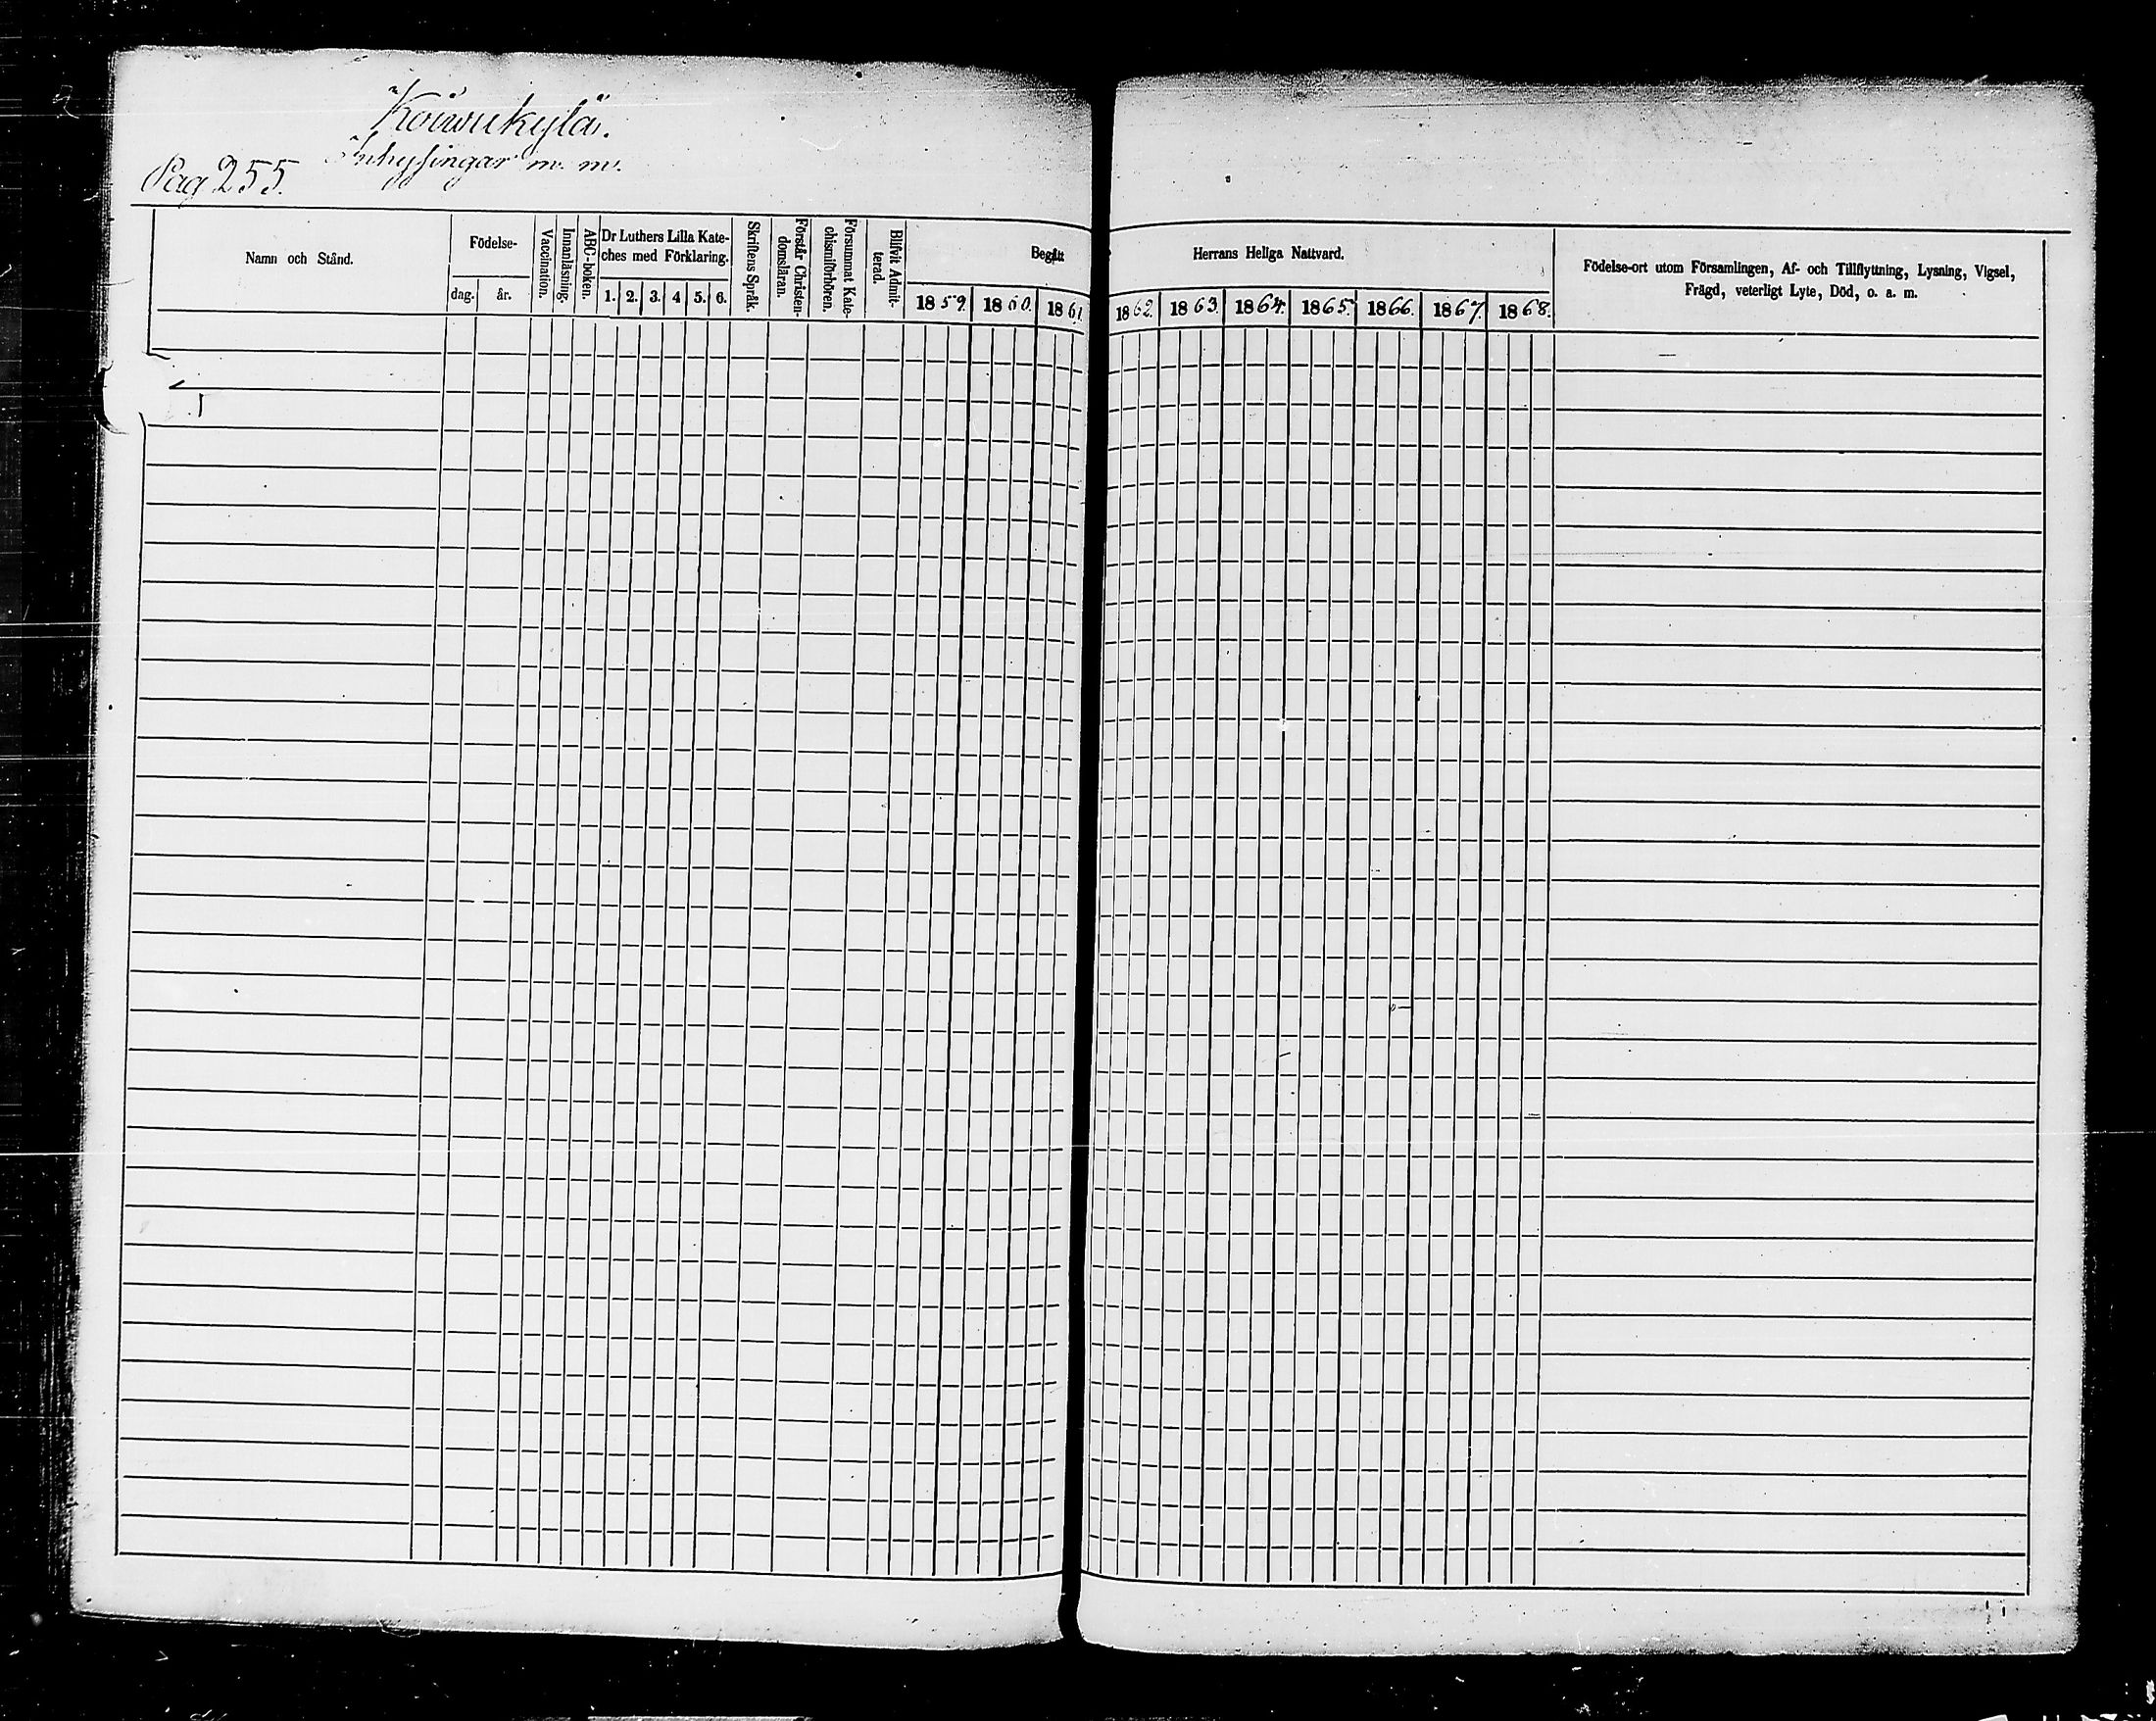 Koiwukylä.
Inhysingar m. m.
Pag 255.
Namn och Stånd.
Födelse-
dag. år.
Vaccination.
Innanläsning.
ABC-boken.
Dr Luthers Lilla Kate-
ches med Förklaring.
1. 2. 3. 4 5. 6.
Skriftens Språk.
Förstår Christen-
domsläran.
Försummat Kate-
chismiförhören.
Blifvit Admit-
terad.
Begått Herrans Heliga Nattvard.
1859. 1860. 1861. 1862. 1863. 1864. 1865. 1866. 1867. 1868.
Födelse-ort utom Församlingen, Af- och Tillflyttning, Lysning, Vigsel,
Frägd, veterligt Lyte, Död, o. a. m.